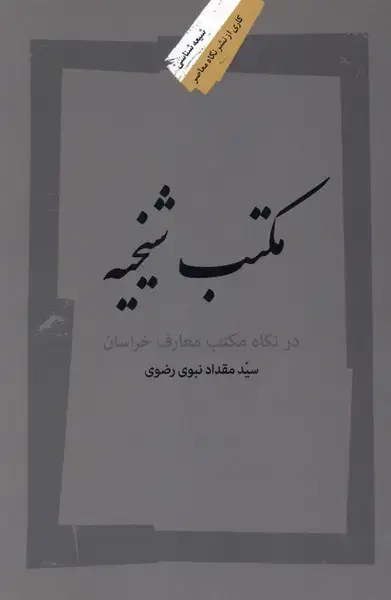 شیعه‌شناسی
کاری از نشر نگاه معاصر
مکتب شیخیه
در نگاه مکتب معارف خراسان
سیّد مقداد نبوی رضوی